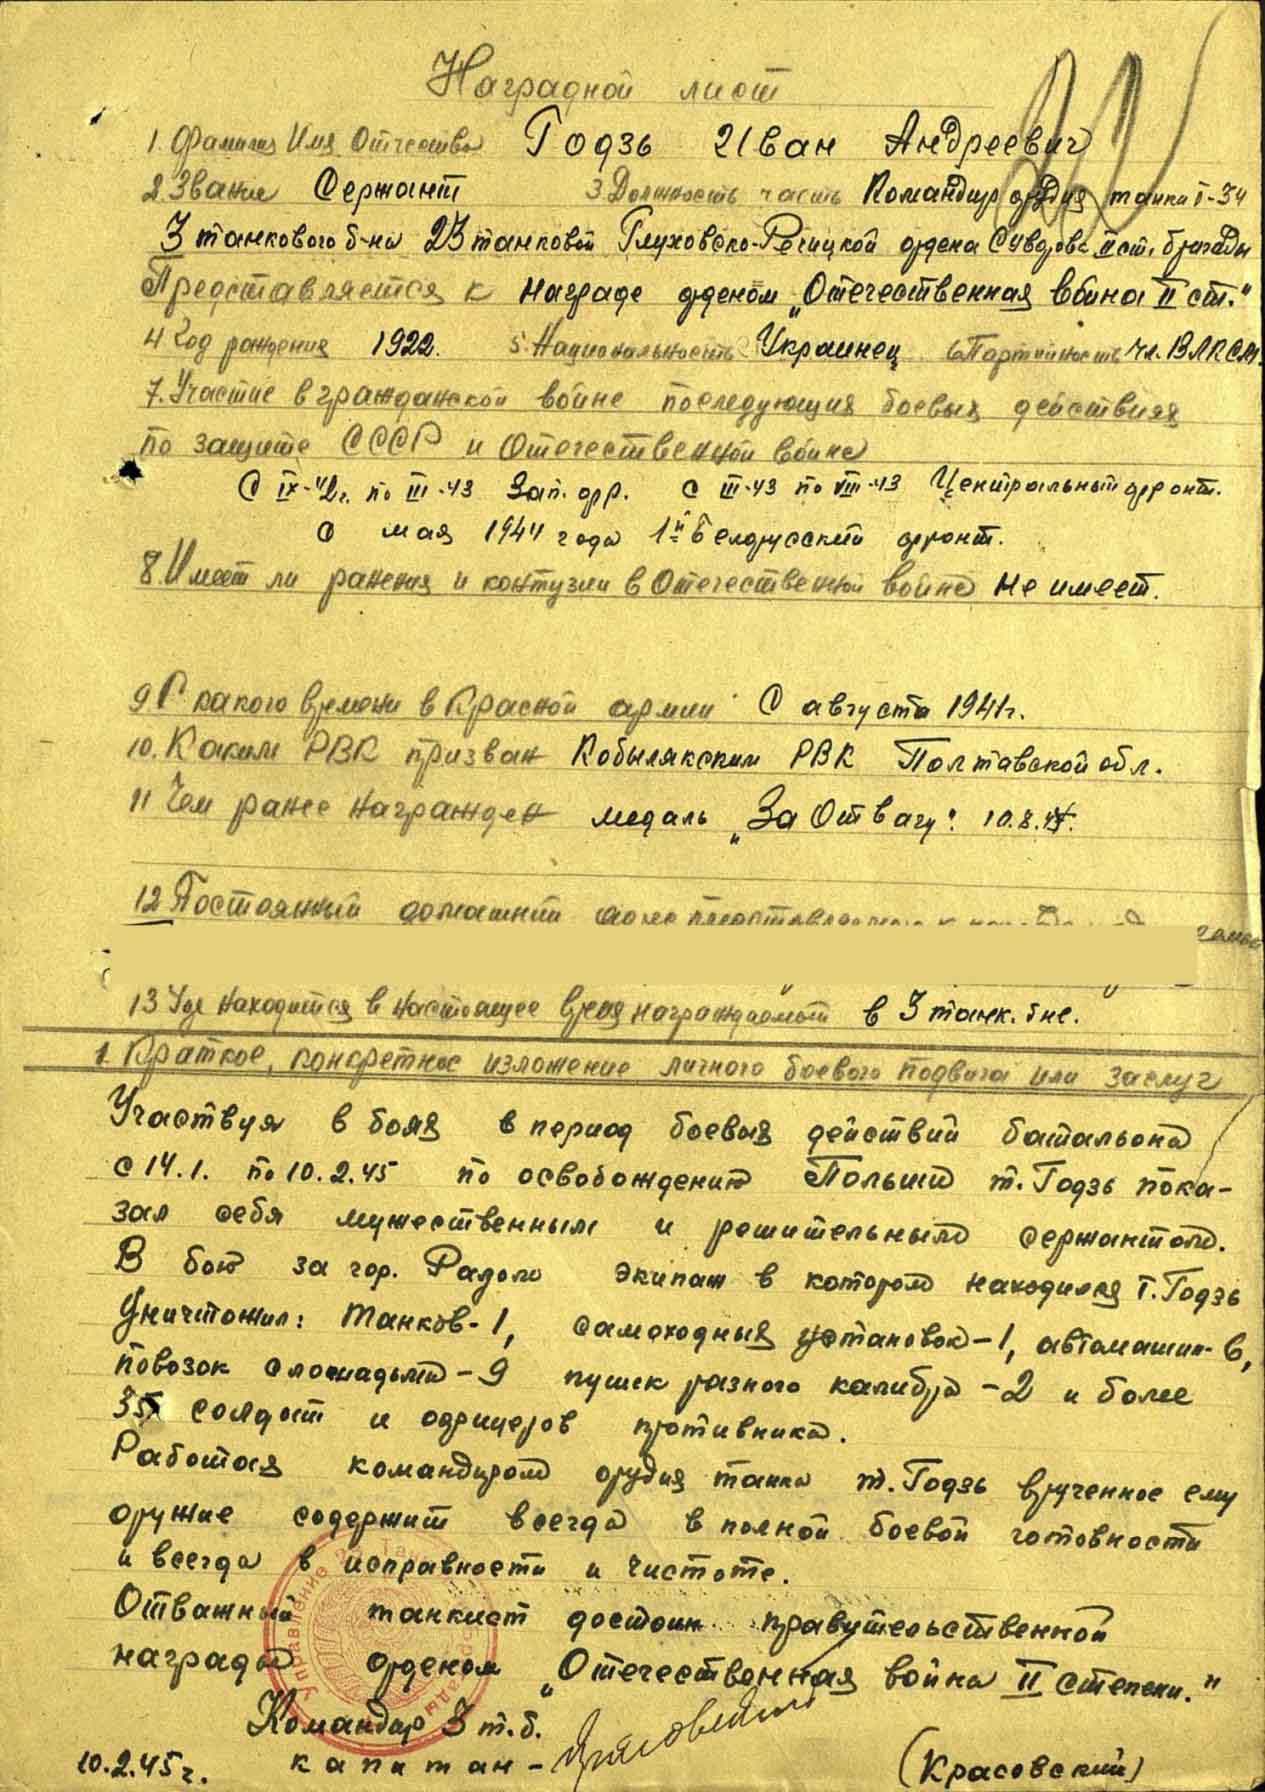 Наградной лист
1. Фамилия Имя Отчество Годзь Иван Андреевич
2. Звание Сержант 3. Должность часть Командир орудия танка Т-34
3 танкового б-на 23 танковой Глуховско-Речицкой ордена Суворова II ст. бригады
Представляется к награде орденом „Отечественная война II ст."
4 Год рождения 1922. 5. Национальность Украинец 6 Партийность чл. ВЛКСМ.
7. Участие в гражданской войне последующия боевых действиях
по защите СССР и Отечественной войне
С IX-42г. по III-43 Зап. фр. с III-43 по VIII-43 Центральный фронт.
с мая 1944 года 1й Белорусский фронт.
8. Имеет ли ранения и контузии в Отечественной войне Не имеет.
9 С какого времени в Красной армии С августа 1941г.
10. Каким РВК призван Кобылякским РВК Полтавской обл.
11 Чем ранее награжден медаль „За Отвагу". 10.8.44.
12 Постоянный домашний
13 Где находится в настоящее время награждаемый в 3 танк. б-не.
1. Краткое, конкретное изложение личного боевого подвига или заслуг
Участвуя в боях в период боевых действий батальона
с 14.1. по 10.2.45 по освобождению Польши т. Годзь пока-
зал себя мужественным и решительным сержантом.
В бою за гор. Радом экипаж в котором находился т. Годзь
уничтожил: танков-1, самоходных установок-1, автомашин-6,
повозок с лошадьми-9 пушек разного калибра-2 и более
35 солдат и офицеров противника.
Работая командиром орудия танка т. Годзь врученное ему
оружие содержит всегда в полной боевой готовности
и всегда в исправности и чистоте.
Отважный танкист достоин правительственной
награды орденом „Отечественная война II степени."
Командир 3 т.б.
10.2.45г. капитан - (Красовский)